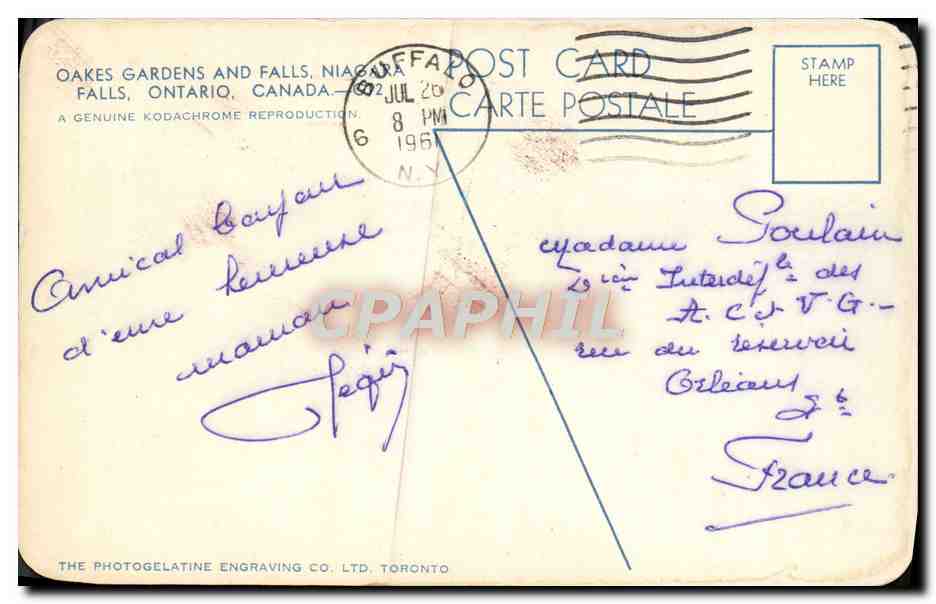 OAKES GARDENS AND FALLS, NIAGARA
FALLS, ONTARIO, CANADA.—
A GENUINE KODACHROME REPRODUCTION.
BUFFALO
JUL 26
8 PM
1961
N.Y.
6
POST CARD
CARTE POSTALE
STAMP
HERE
Amical bonjour
d'une heureuse
maman
Madame Poulain
Interdép le des
A.C et V.G.-
rue du réservoir
Orléans
France
CPAPHIL
THE PHOTOGELATINE ENGRAVING CO. LTD. TORONTO